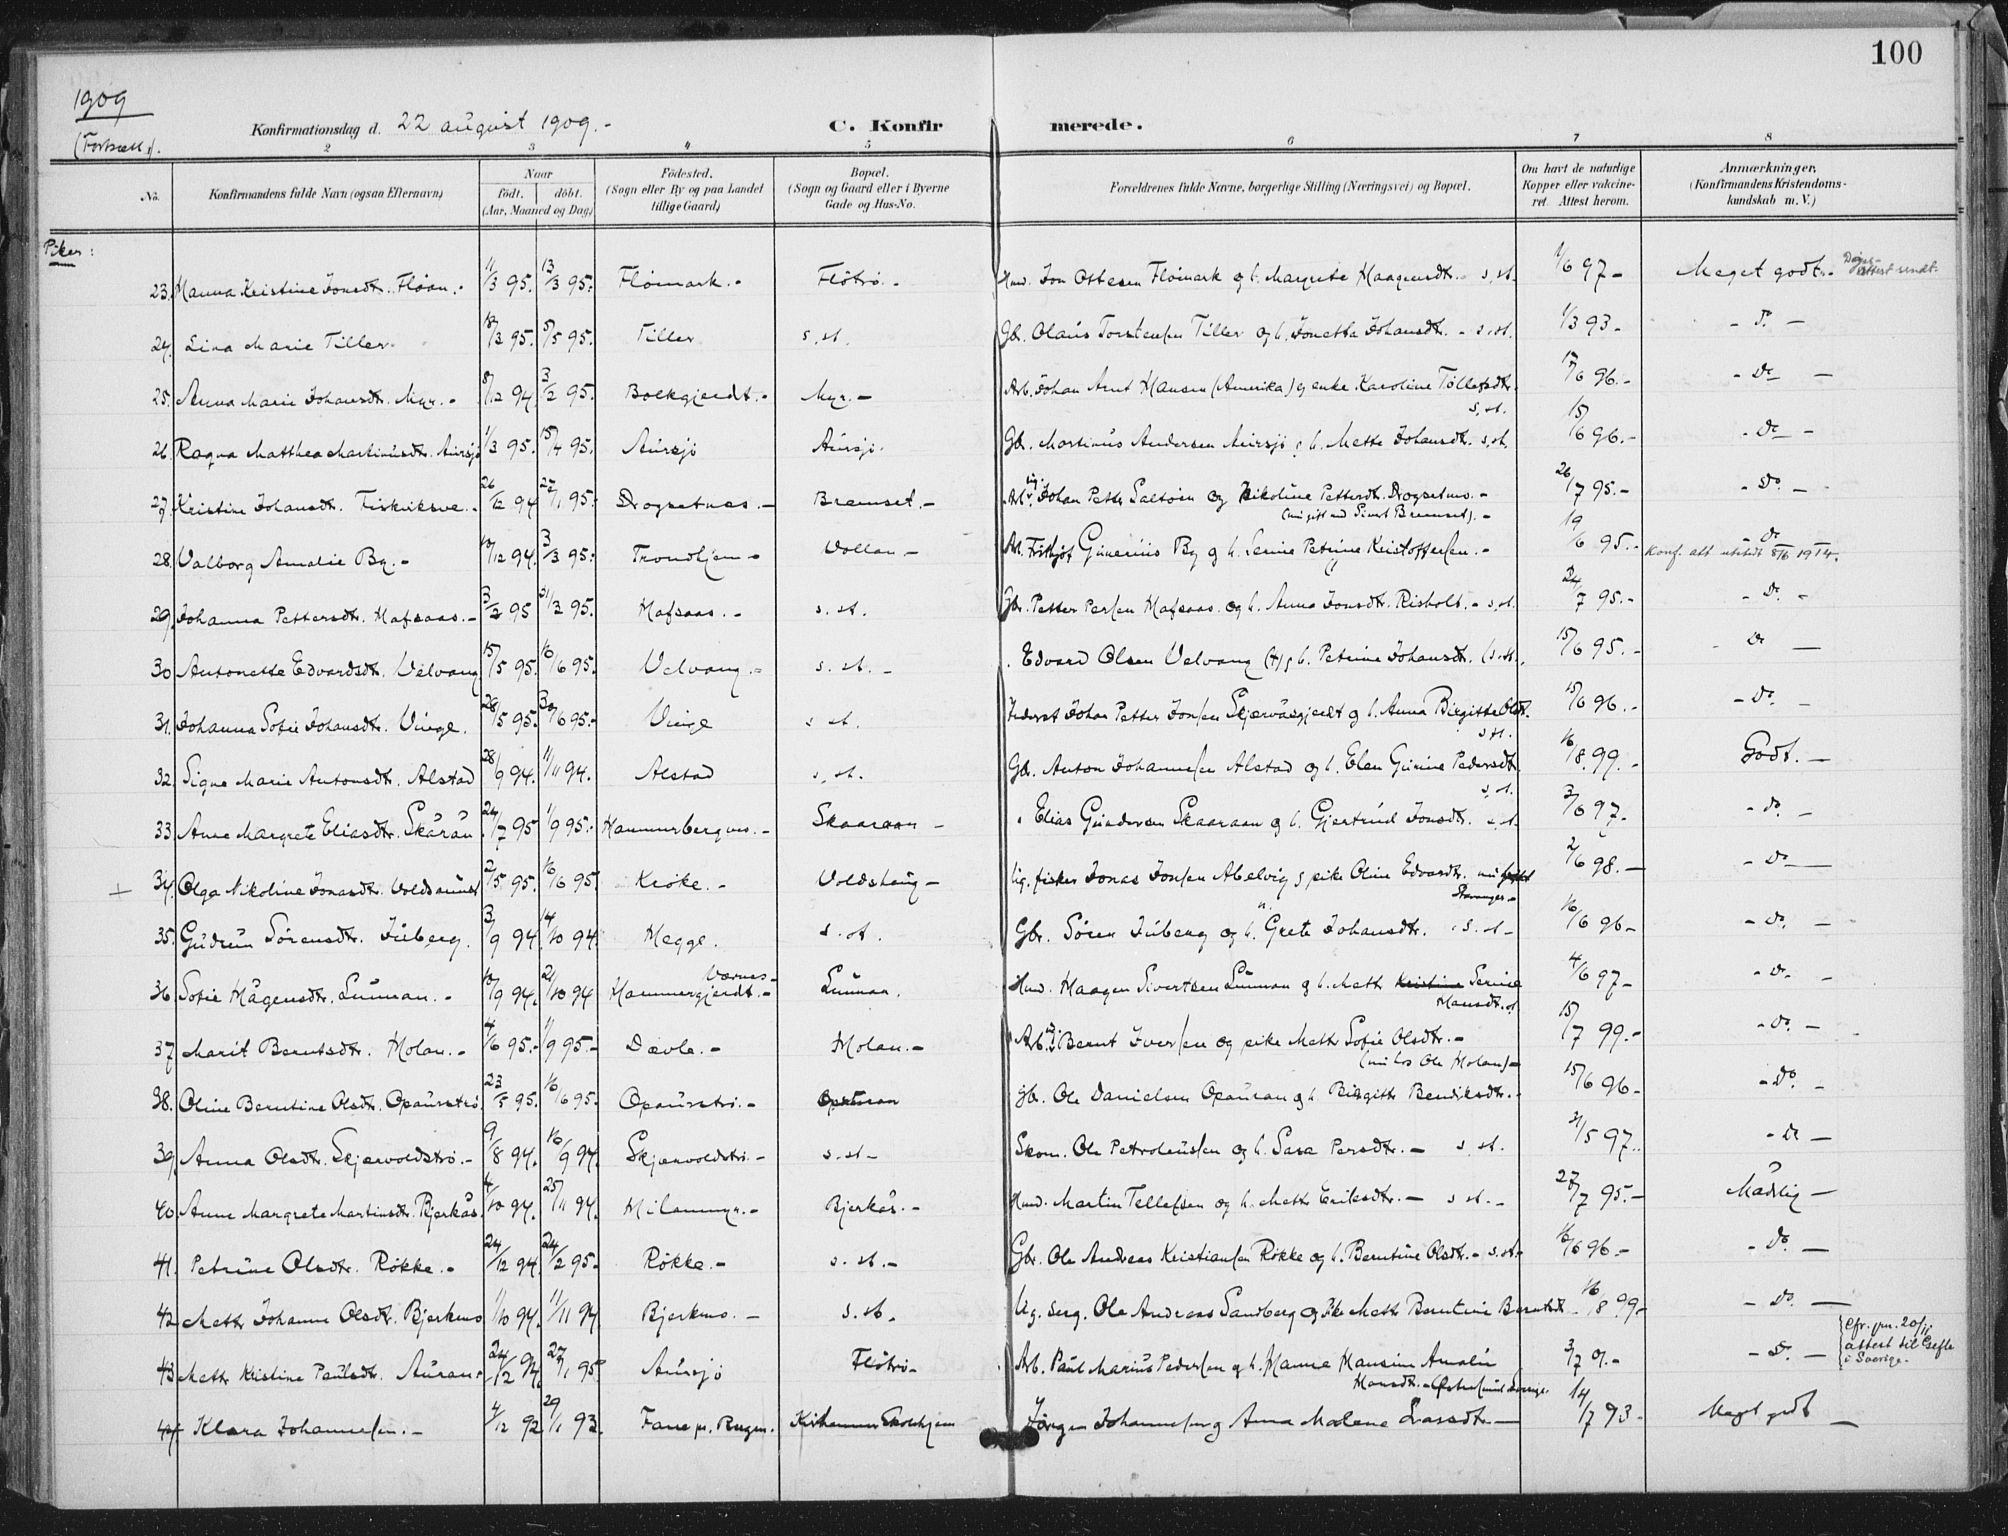 100
1909
(Fortsætt.).
Konfirmationsdag d. 22 august 1909.-
C. Konfir merede.
2 3 4 5 6 7 8
No. Konfirmandens fulde Navn (ogsaa Efternavn)
Naar født. døbt. (Aar, Maaned og Dag)
Fødested. (Sogn eller By og paa Landet tillige Gaard)
Bopæl. (Sogn og Gaard eller i Byerne Gade og Hus-No.
Forældrenes fulde Navne, borgerlige Stilling (Næringsvei) og Bopæl.
Om havt de naturlige Kopper eller vakcineret. Attest herom.
Anmærkninger. (Konfirmandens Kristendomskundskab m. V.)
Piker:
23. Hanna Kristine Jonsdtr. Fløan.- 11/3 95. 13/3 95. Flømark.- Fløtrø.- Hmd. Jon Ottesen Flømark og h. Margrete Haagensdtr. s. st. 1/6 97- Meget godt.- attest sendt.
24. Lina Marie Tiller. 18/3 95. 5/5 95. Tiller s. st. Gbr. Olaus Torstensen Tiller og h. Jonetta Johansdtr. - s. st. 1/3 93.
25. Anna Marie Johansdtr. Myr.- 8/12 94. 3/2 95. Bolkgjerdt.- Myr.- Arb. Johan Arnt Hansen (Amerika) og enke Karoline Tøllefsdtr. s. st. 17/6 96.- - Do -
26. Ragna Matthea Martinusdtr. Aursjø 1/3 95. 15/4 95. Aursjø Aursjø. Gbr. Martinus Andersen Aursjø og h. Mette Johansdtr. s. st. 15/6 96.- - Do -
27. Kristine Johansdtr. Fiskviksve.- 26/12 94 27/1 95. Drogsetnes.- Bremset.- Johan Petter Saltøien og Nikoline Pettersdtr. Drogsetmo.- (nu gift med Sivert Bremset).- 26/7 95.- - Do -
28. Valborg Amalie By.- 13/12 94. 3/3 95. Trondhjem- Vollan- Arb. Fritjof Gunerius By og h. Serine Petrine Kristoffersen.- 19/6 95.- - Do Konf. att. utstedt 8/6 1914.
29. Johanna Pettersdtr. Hafsaas.- 3/2 95 31/3 95. Hafsaas.- s. st. Gbr. Petter Persen Hafsaas og h. Anna Jonsdtr. Risholt.- s. st. 24/7 95.- - Do -
30. Antonette Edvardsdtr. Velvang 15/5 95. 16/6 95. Velvang.- s. st.- Edvard Olsen Velvang (†) og h. Petrine Johansdtr. (s. st. 15/6 95.- Do -
31. Johanna Sofie Johansdtr. Vinge. 28/5 95. 30/6 95.- Vinge s. st. Inderst Johan Petter Jonsen Skjervaagjerdt og h. Anna Birgitte Olsdtr. s. st. 15/6 96.- - Do -
32. Signe Marie Antonsdtr. Alstad 28/9 94. 11/11 94. Alstad s. st. Gbr. Anton Johannesen Alstad og h. Elen Gurine Pedersdtr. s. st. 16/8 99.- Godt.-
33. Anne Margrete Eliasdtr. Skårån 24/7 95 1/9 95.- Hammerbergmo.- Skaaraan- Elias Gundersen Skaaraan og h. Gjertrud Jonsdtr. s. st. 3/6 97.- - Do -
+ 34. Olga Nikoline Jonasdtr. Voldsaunet 2/5 95. 16/6 95. Krøke.- Voldshaug- Ug. fisker Jonas Jonsen Abelvig og pike Oline Edvardsdtr. nu Stavanger- 2/6 98.- - Do -
35. Gudrun Sørensdtr. Juberg. 3/9 94. 14/10 94. Hegge. s. st. Gbr. Søren Juberg og h. Grete Johansdtr. s. st.- 16/6 96- - Do -
36. Sofie Hågensdtr. Lunnan.- 13/9 94. 21/10 94 Værnes- Hammergjerdt.- Lunnan. Hmd. Haagen Sivertsen Lunnan og h. Mette Kristine Serine Hansdtr. 4/6 97- - Do -
37. Marit Berntsdtr. Holan.- 4/6 95.- 1/9 95.- Dævle.- Holan.- Arb. Bernt Iversen og pike Mette Sofie Olsdtr.- (nu hos Ole Holan)- 15/7 99.- - Do -
38. Oline Berntine Olsdtr. Opaurstrø. 23/5 95. 16/6 95. Opaurstrø.- Opauran Gbr. Ole Danielsen Opauran og h. Birgitte Bendiksdtr.- 15/6 96- - Do -
39. Anna Olsdtr. Skjervoldstrø.- 9/8 94. 16/9 94. Skjervoldstrø.- s. st- Skom. Ole Petroliussen og h. Sara Persdtr.- s. st. 31/5 97.- - Do -
40. Anne Margrete Martinsdtr. Bjerkås. 4/10 94. 25/11 94. Hilammyr.- Bjerkås.- Hmd. Martin Tellefsen og h. Mette Eriksdtr.- s. st.- 27/7 95.- Mådelig-
41. Petrine Olsdtr. Røkke.- 24/12 94. 24/2 95- Røkke.- s. st.- Gbr. Ole Andreas Kristiansen Røkke og h. Berntine Olsdtr.- s. st.- 16/6 96- - Do -
42. Mette Johanne Olsdtr. Bjerkmo 1/10 94. 11/11 94 Bjerkmo.- s. st. Ug. serg. Ole Andreas Sandberg og Pike Mette Berntine Berntsdtr. 16/8 99- - Do -
43. Mette Kristine Paulsdtr. Auran.- 24/12 94. 27/1 95. Aursjø Fløtrø- Arb. Paul Marius Pedersen og h. Hanna Hansine Amalie Hansdtr.- Østersund Sverige. 3/7 0.- - Do - Cfr. jnr. 20/11 attest til Gefle i Sverige.-
44. Klara Johannesen.- 4/12 92 29/1 93. Fane pr. Bergen. Jørgen Johannesen og Anna Malene Larsdtr.- 14/7 93- Meget godt -